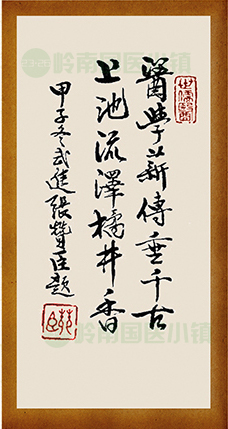 醫學薪傳垂千古
上池流澤橘井香
甲子冬武進張贊臣題
世儒醫
岭南国医小镇
岭南国医小镇